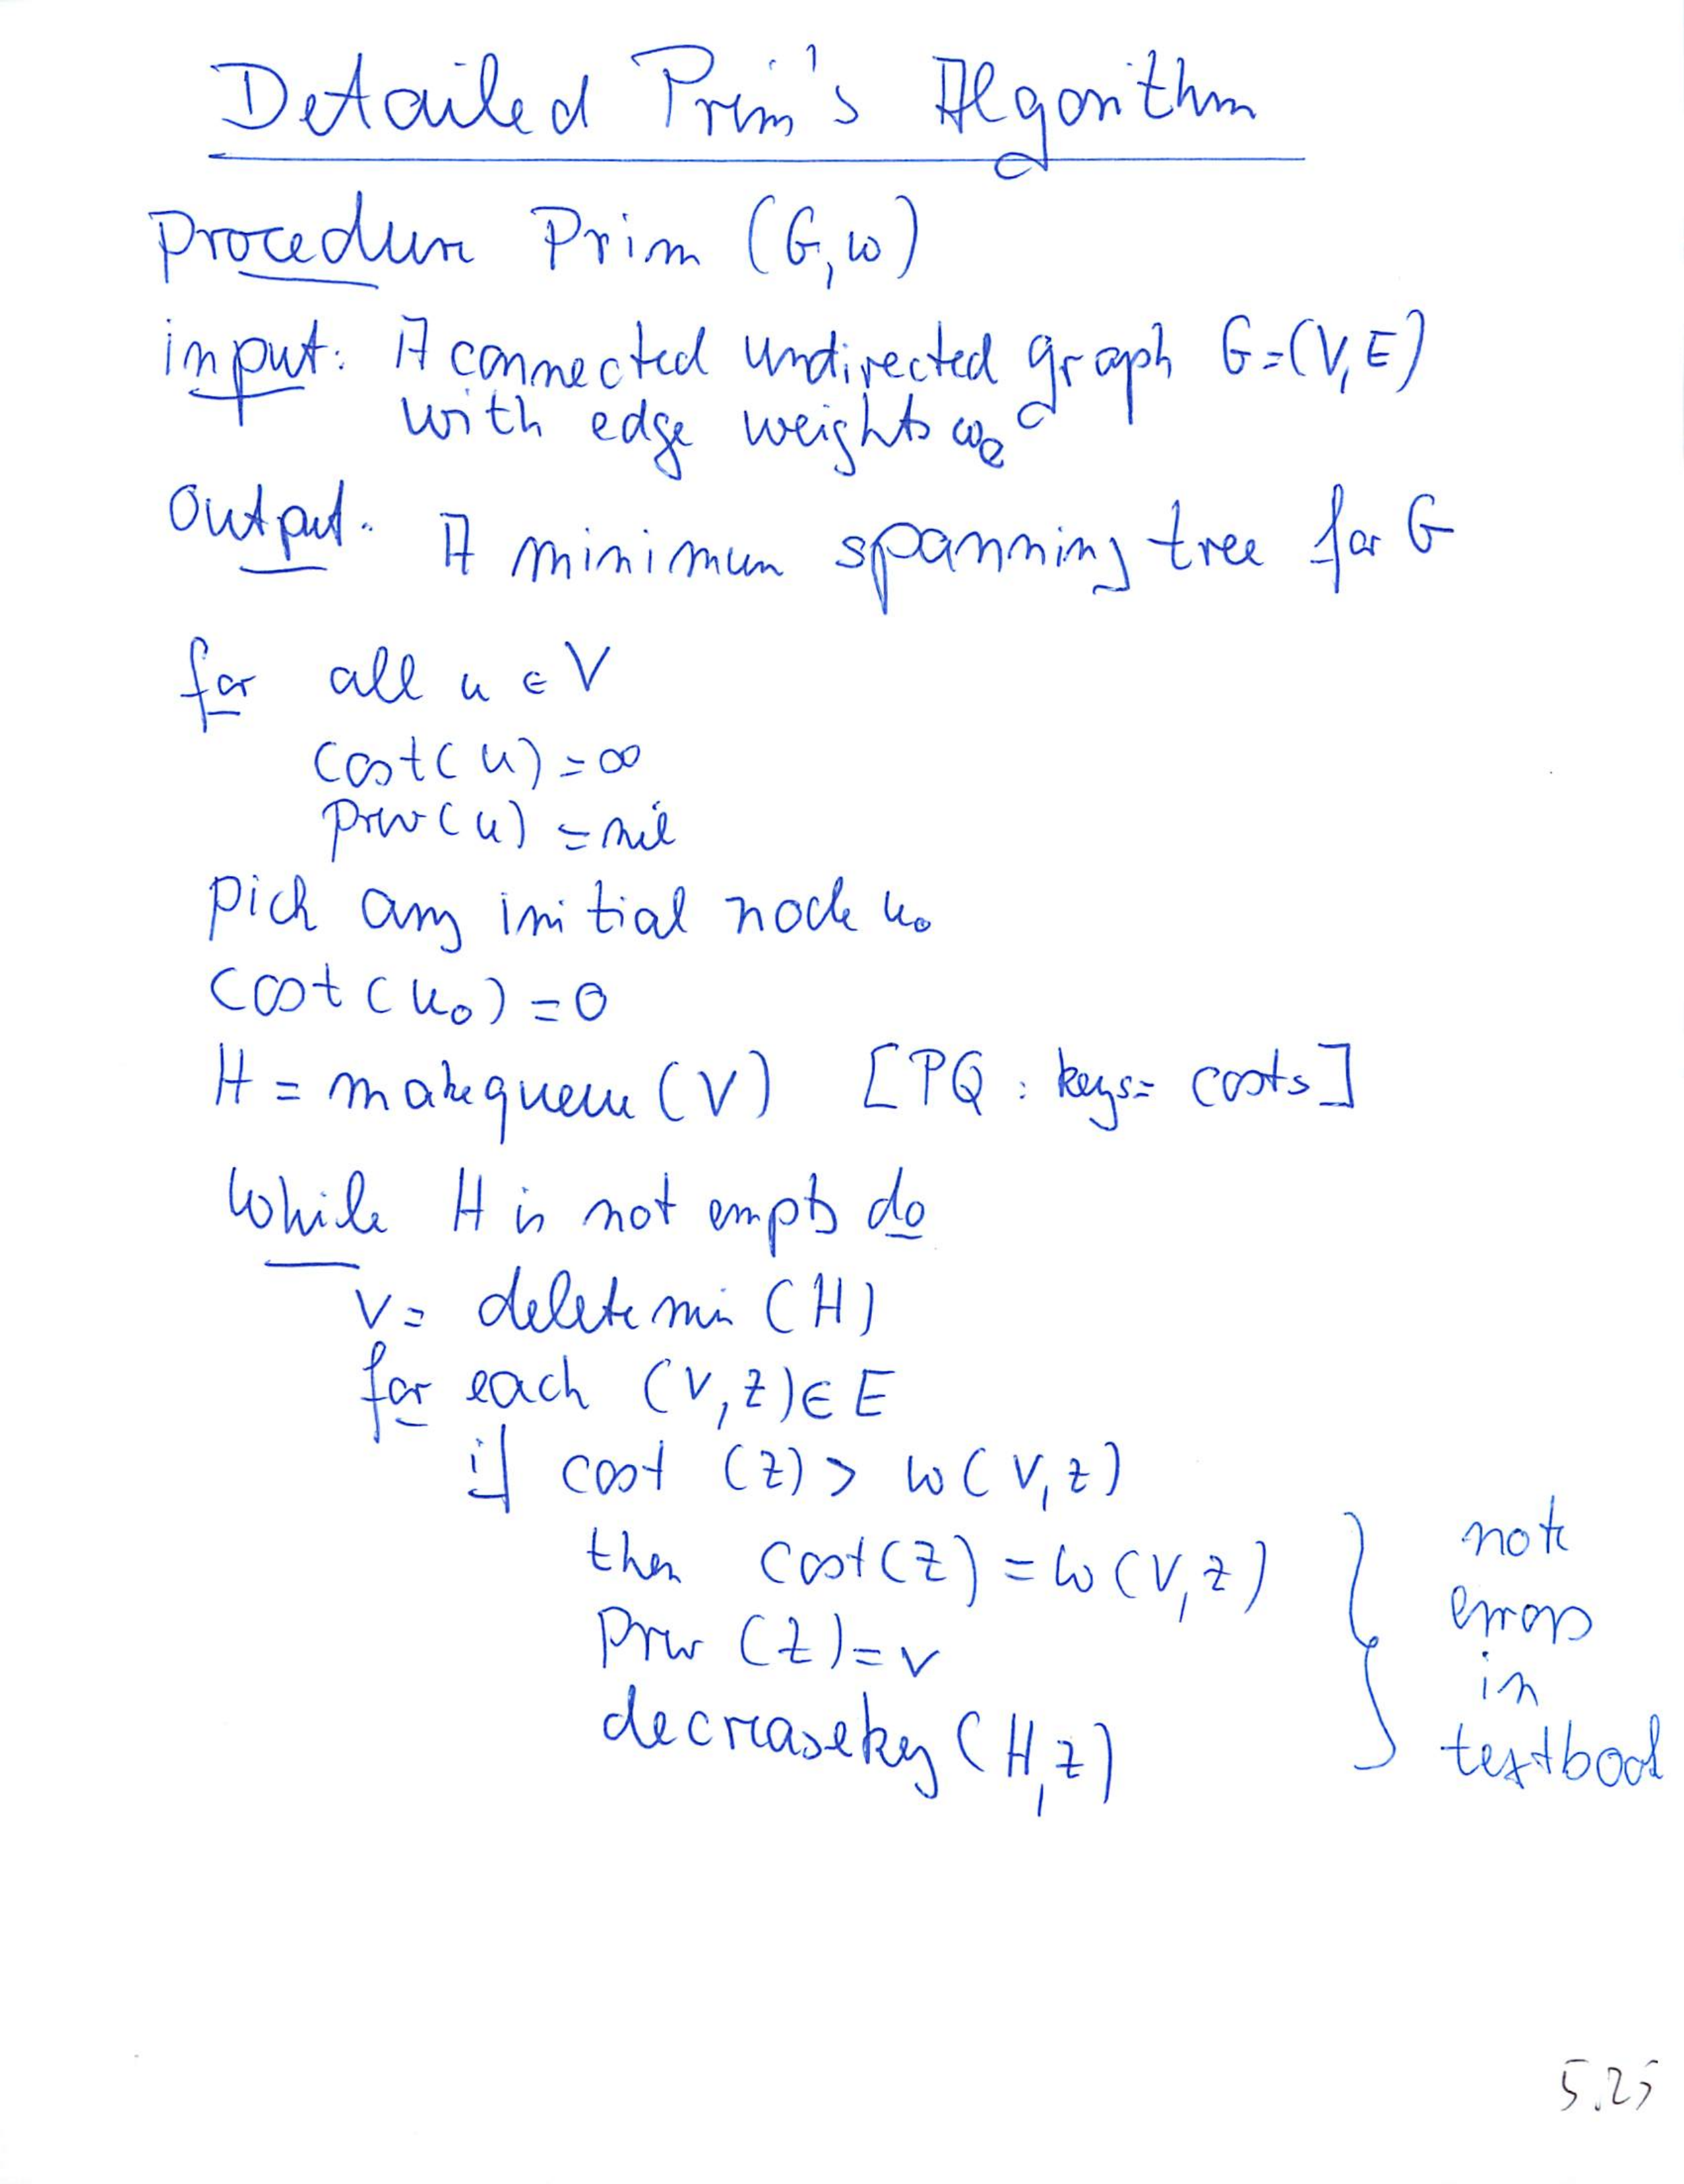 Detailed Prim's Algorithm
procedure Prim (G, w)
input: A connected undirected graph G=(V,E)
with edge weights we
Output: A minimum spanning tree for G
for all u ∈ V
cost(u) = ∞
prev(u) = nil
pick any initial node u₀
cost(u₀) = 0
H = makequeue (V) [PQ : keys= costs]
While H is not empty do
v = deletemin (H)
for each (v, z) ∈ E
if cost (z) > w(v, z)
then cost(z) = w(v, z)
prev (z) = v
decreasekey (H, z)
note
errors
in
textbook
5.25